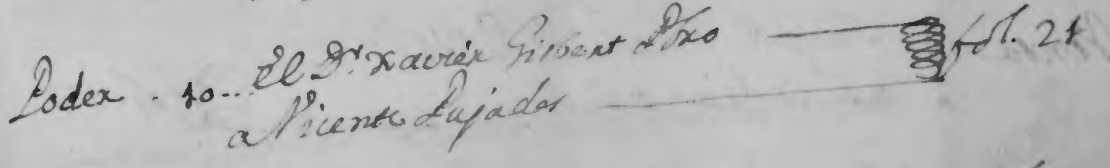 Poder . 10... El Dr. Xavier Gisbert Pbro fol. 21
a Vicente Pujades